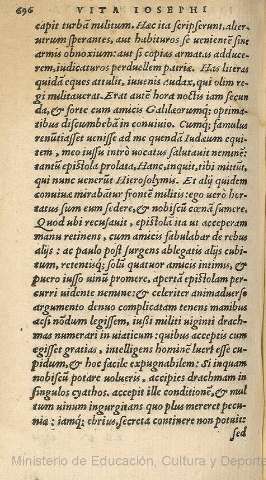 696 VITA IOSEPHI
capit turbã militum. Hac ita scripserunt, alter-
utrum sperantes, aut habituros se uenientē sine
armis obnoxium: aut si copias armatas adduce-
rem, iudicaturos perduellem patriæ. Has literas
quidã eques attulit, iuuenis audax, qui olim re-
gi militauerat. Erat autē hora noctis iam secun-
da, & forte cum amicis Galilæorumq; optima-
tibus discumbebã in conuiuio. Cumq; famulus
renūtiasset uenisse ad me quendã Iudæum equi-
tem, meo iussu intrò uocatus salutauit neminē:
tantū epistola prolata, Hanc, inquit, tibi mittūt,
qui nunc uenerūt Hierosolymis. Et alij quidem
conuiuæ mirabãtur frontē militis: ego uerò hor-
tatus sum eum sedere, & nobiscū cœnã sumere.
Quod ubi recusauit, epistola ita ut acceperam
manu retinens, cum amicis fabulabar de rebus
alijs: ac paulo pòst surgens ablegatis alijs cubi-
tum, retentisq; solū quatuor amicis intimis, &
puero iusso uinū promere, apertã epistolam per-
curri uidente nemine: & celeriter animaduerso
argumento denuo complicatam tenens manibus
acsi nōdum legissem, iussi militi uiginti drach-
mas numerari in uiaticum: quibus acceptis cum
egisset gratias, intelligens hominē lucri esse cu-
pidum, & hoc facile expugnabilem: Si inquam
nobiscū potare uolueris, accipies drachmam in
singulos cyathos. accepit ille conditionē, & mul
tum uinum ingurgitans quo plus mereret pecu-
niæ: iamq; ebrius, secreta continere non potuit:
sed
Ministerio de Educación, Cultura y Deporte